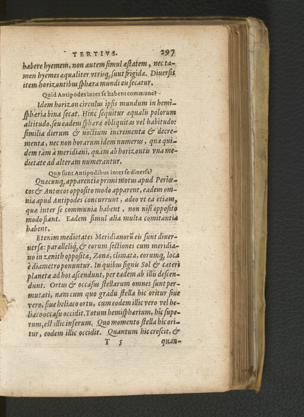 TERTIVS. 297
habere hyemem, non autem simul æstatem, nec ta-
men hyemes equaliter utrinq; sunt frigidæ. Diuersis
item horizontibus sphæra mundi dissecatur.
Quid Antipodes inter se habent commune?
Idem horizon circulus ipsis mundum in hemi-
sphæria bina secat. Hinc sequitur equalis polorum
altitudo, seu eadem sphæræ obliquitas vel habitudo:
similia dierum & noctium incrementa & decre-
menta, nec non horarum idem numerus, quæ qui-
dem tam à meridiani, quàm ab horizontis vna me-
dietate ad alteram numerantur.
Quæ sunt Antipodibus inter se diuersa?
Quæcunq; apparentia primi motus apud Periœ-
cos & Antœcos opposito modo apparent, eadem om-
nia apud Antipodes concurrunt, adeo vt ea etiam,
quæ inter se communia habent, non nisi opposito
modo fiant. Eadem simul alia multa comitantia
habent.
Etenim medietates Meridianorū eis sunt diuer-
sæ: parallelíq; & eorum sectiones cum meridia-
no in zenith opposita, Zonæ, climata, eorumq; loca
è diametro ponuntur. In quibus signis Sol & cæteri
planetæ ad hos ascendunt, per eadem ab illis descen-
dunt. Ortus & occasus stellarum omnes sunt per-
mutati, nam cum quo gradu stella hic oritur siue
vero, siue heliaco ortu, cum eodem illic vero vel he-
liaco occasu occidit. Totum hemisphærium, hic supe-
rum, est illic inferum. Quo momento stella hic ori-
tur, eodem illic occidit. Quantum hic crescit, &
T 5 quan-